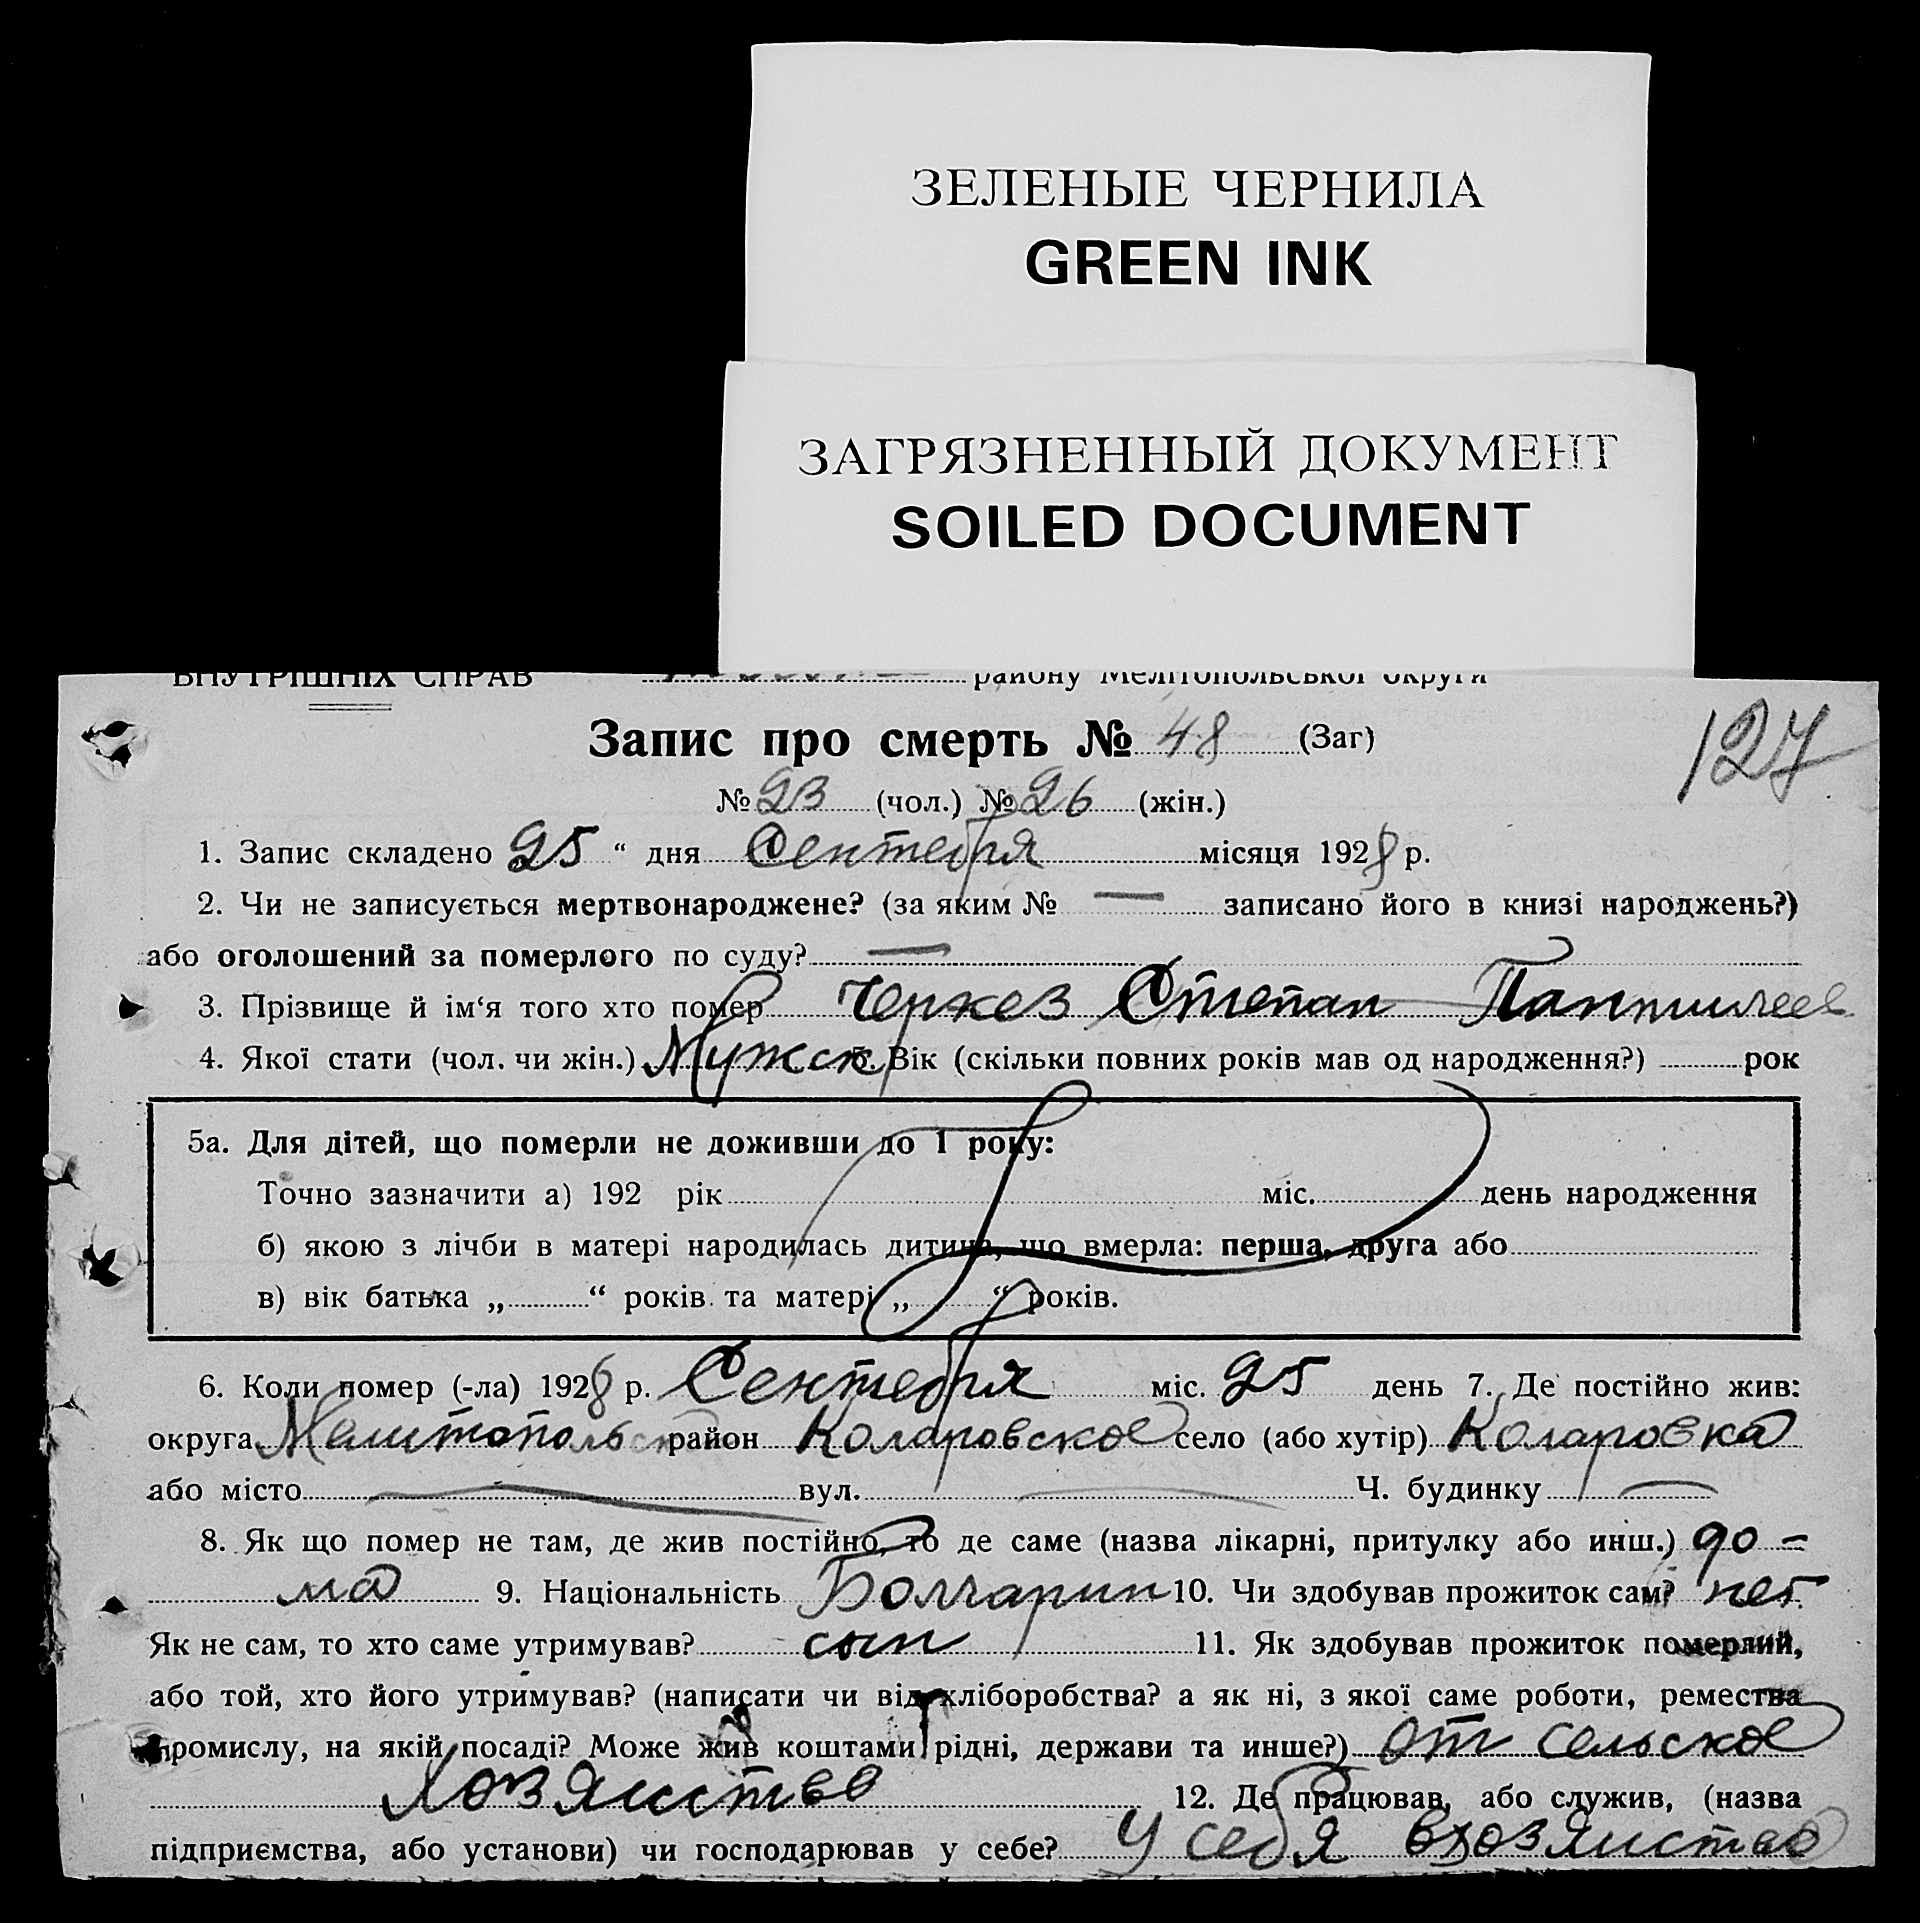 ЗЕЛЕНЫЕ ЧЕРНИЛА
GREEN INK
ЗАГРЯЗНЕННЫЙ ДОКУМЕНТ
SOILED DOCUMENT
ВНУТРІШНІХ СПРАВ району Мелітопольської округи
127
Запис про смерть № 48 (Заг)
№ 23 (чол.) № 26 (жін.)
1. Запис складено 25 “ дня Сентебря місяця 1928 р.
2. Чи не записується мертвонароджене? (за яким № — записано його в книзі народжень?)
або оголошений за померлого по суду? —
3. Прізвище й ім‘я того хто помер Черкез Степан Пантилеев
4. Якої стати (чол. чи жін.) Мужск 5. Вік (скільки повних років мав од народження?) рок
5а. Для дітей, що померли не доживши до 1 року:
Точно зазначити а) 192 рік міс. день народження
б) якою з лічби в матері народилась дитина, що вмерла: перша, друга або
в) вік батька „ “ років та матері „ “ років.
6. Коли помер (-ла) 1928 р. Сентебря міс. 25 день 7. Де постійно жив:
округа Мелитопольск район Коларовское село (або хутір) Коларовка
або місто — вул. — Ч. будинку —
8. Як що помер не там, де жив постійно, то де саме (назва лікарні, притулку або инш.) до-
ма 9. Національність Болгарин 10. Чи здобував прожиток сам? нет
Як не сам, то хто саме утримував? сын 11. Як здобував прожиток померлий,
або той, хто його утримував? (написати чи від хліборобства? а як ні, з якої саме роботи, ремества
промислу, на якій посаді? Може жив коштами рідні, держави та инше?) от сельское
хозяиство 12. Де працював, або служив, (назва
підприємства, або установи) чи господарював у себе? У себя в хозяиство